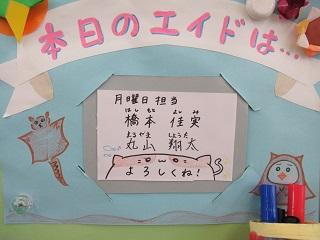 本日のエイドは…
月曜日 担当
はしもと よしみ
橋本 佳実
まるやま しょうた
丸山 翔太
よろしくね!